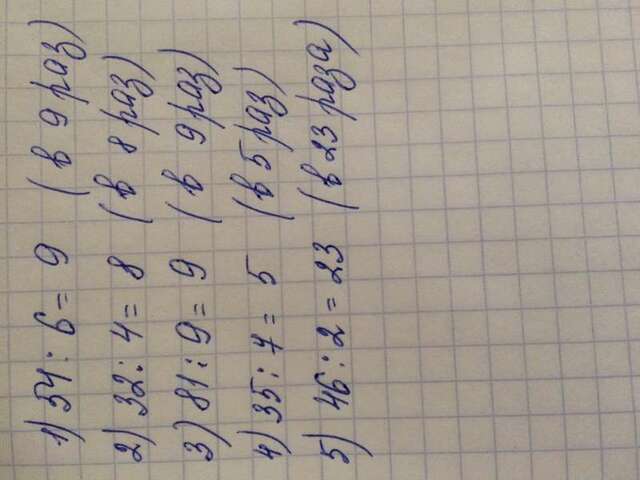 1) 54 : 6 = 9 (в 9 раз)
2) 32 : 4 = 8 (в 8 раз)
3) 81 : 9 = 9 (в 9 раз)
4) 35 : 7 = 5 (в 5 раз)
5) 46 : 2 = 23 (в 23 раза)